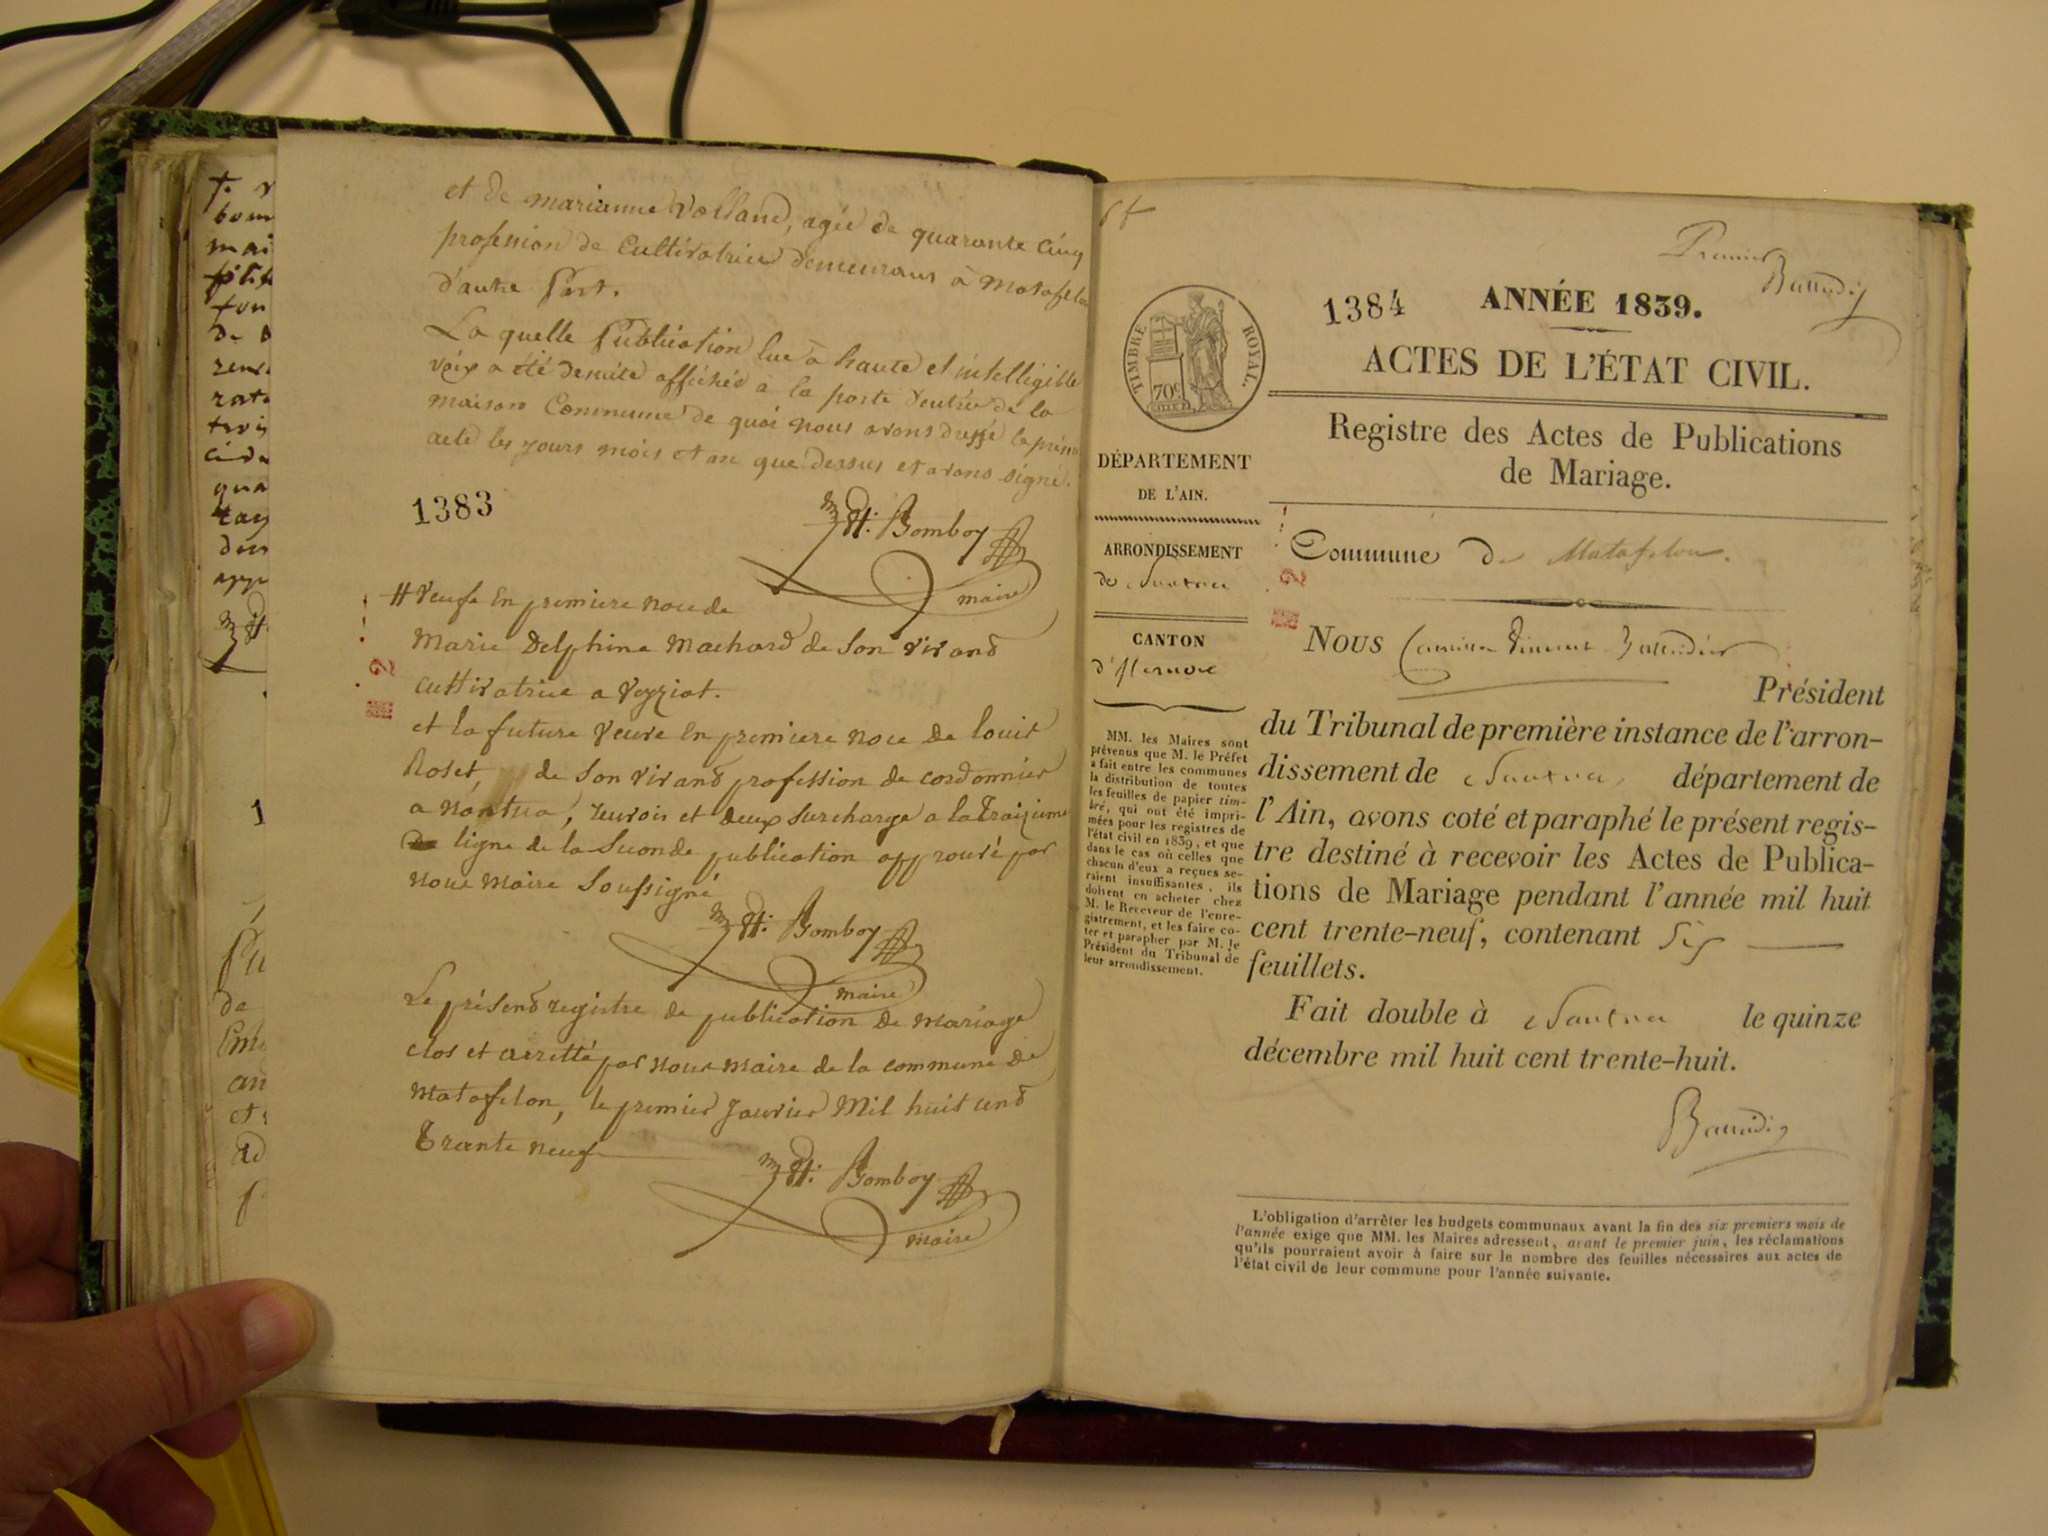 et de marianne Volland, agée de quarante cinq
profession de Cultivatrice demeurans à Matafelon
d'autre Part.
La quelle Publication lue à haute et intelligible
voix a été densuite affichée à la porte d'entrée de la
maison Commune de quoi nous avons dressé le présent
acte les jours mois et an que dessus et avons signé.
1383
Bomboy
maire
# veufe En premiere noce de
Marie Delphine Machard de son vivand
cultivatrice a Veyziat.
et la future veuve En premiere noce de louis
Roset, de son vivand profession de cordonnier
a nantua, renvois et deux surcharge a la Traizieme
ligne de la seconde publication approuvé par
nous Maire Soussigné
Bomboy
maire
Le présend registre de publication de mariage
clos et arretté par nous maire de la commune de
Matafelon, le premier Janvier Mil huit cend
Trante neuf
Bomboy
maire
Premier
1384 ANNÉE 1839.
ACTES DE L'ÉTAT CIVIL.
TIMBRE ROYAL.
70c
Registre des Actes de Publications
de Mariage.
DÉPARTEMENT
DE L'AIN.
ARRONDISSEMENT
de Nantua
CANTON
d'Izernore
MM. les Maires sont
prévenus que M. le Préfet
a fait entre les communes
la distribution de toutes
les feuilles de papier tim-
bré, qui ont été impri-
mées pour les registres de
l'état civil en 1839, et que
dans le cas où celles que
chacun d'eux a reçues se-
raient insuffisantes, ils
doivent en acheter chez
M. le Receveur de l'enre-
gistrement, et les faire co-
ter et parapher par M. le
Président du Tribunal de
leur arrondissement.
Commune de Matafelon.
NOUS Camille Vincent
Président
du Tribunal de première instance de l'arron-
dissement de Nantua, département de
l'Ain, avons coté et paraphé le présent regis-
tre destiné à recevoir les Actes de Publica-
tions de Mariage pendant l'année mil huit
cent trente-neuf, contenant Six
feuillets.
Fait double à Nantua le quinze
décembre mil huit cent trente-huit.
L'obligation d'arrêter les budgets communaux avant la fin des six premiers mois de
l'année exige que MM. les Maires adressent, avant le premier juin, les réclamations
qu'ils pourraient avoir à faire sur le nombre des feuilles nécessaires aux actes de
l'état civil de leur commune pour l'année suivante.